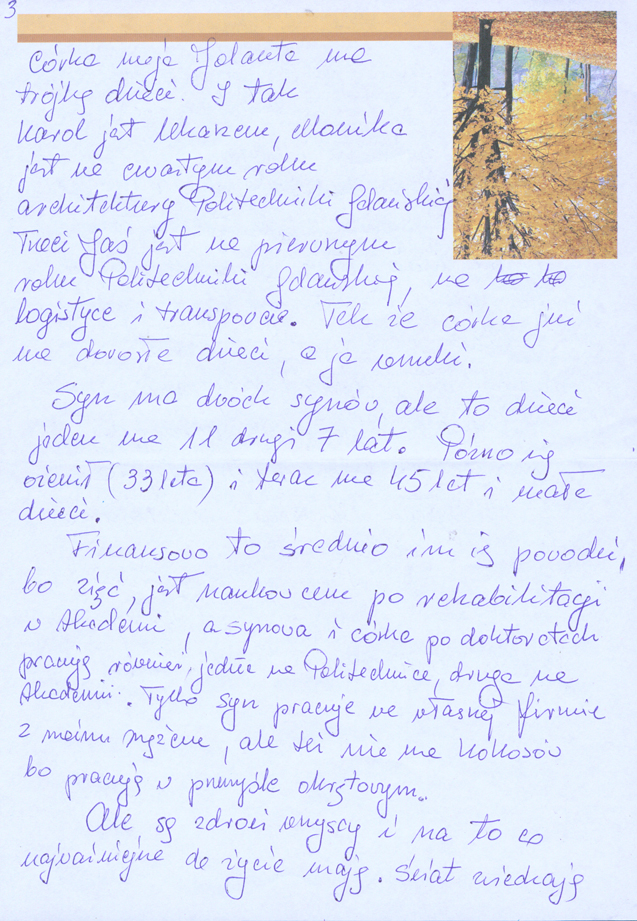 3
Córka moja Jolanta ma
trójkę dzieci. I tak
Karol jest lekarzem, Monika
jest na czwartym roku
architektury Politechniki Gdańskiej
Trzeci Jaś jest na pierwszym
roku Politechniki Gdańskiej, na
logistyce i transporcie. Tak że córka już
ma dorosłe dzieci, a ja wnuki.
Syn ma dwóch synów, ale to dzieci
jeden ma 11 drugi 7 lat. Późno się
ożenił (33 lata) i teraz ma 45 lat i małe
dzieci.
Finansowo to średnio im się powodzi,
bo zięć, jest naukowcem po rehabilitacji
w Akademii, a synowa i córka po doktoratach
pracują również, jedna na Politechnice, druga na
Akademii. Tylko syn pracuje we własnej firmie
z moim mężem, ale też nie ma kokosów
bo pracują w przemyśle okrętowym.
Ale są zdrowi wszyscy i na to co
najważniejsze do życia mają. Świat zwiedzają